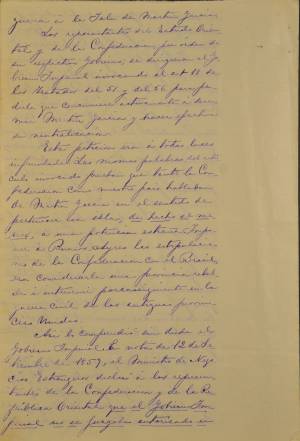 guerra á la Isla de Martin Garcia.
Los representantes del Estado Orien
tal y de la Confederacion, por orden de
sus respectivos Gobiernos, se dirigieron al Go
bierno Imperial invocando el art 18 de
los tratados del 51 y del 56 para pe
dirle que concurriese activamente á desar
mar Martin Garcia y hacer efectiva
su neutralizacion.
Esta peticion era á todas luces
infundada. Las mismas palabras del artí
culo invocado prueban que tanto la Con
federacion como nuestro pais hablaban
de Martin Garcia en el sentido de
pertenecer esa isla, de hecho al me
nos, á una potencia estraña. Impo
ner á Buenos Ayres las estipulacio
nes de la Confederacion con el Brasil,
era considerarla una provincia rebel
de é intervenir por consiguiente en la
guerra civil de las antiguas provin
cias Unidas.
Asi lo comprendió sin duda el
Gobierno Imperial. En nota de 12 de Se
tiembre de 1859, el Ministro de Nego
cios Estrangeros declaró á los represen
tantes de la Confederacion y de la Re
pública Oriental que el Gobierno Im
perial no se juzgaba autorizado en